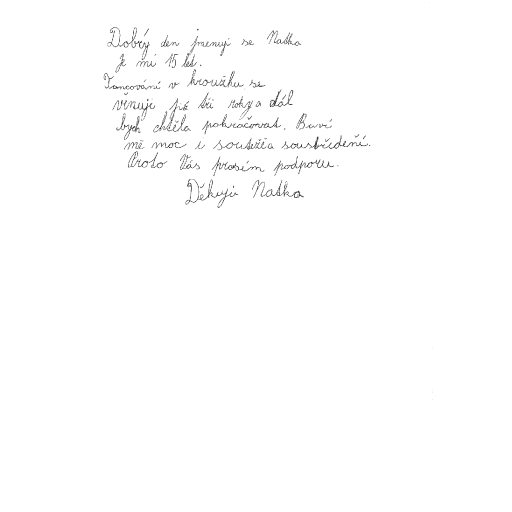 Dobrý den jmenuji se Naťka
Je mi 15 let.
Tancování v kroužku se
věnuje již tři roky a dál
bych chtěla pokračovat. Baví
mě moc i soutěže a soustředění.
Proto Vás prosím podporu.
Děkuji Naťka